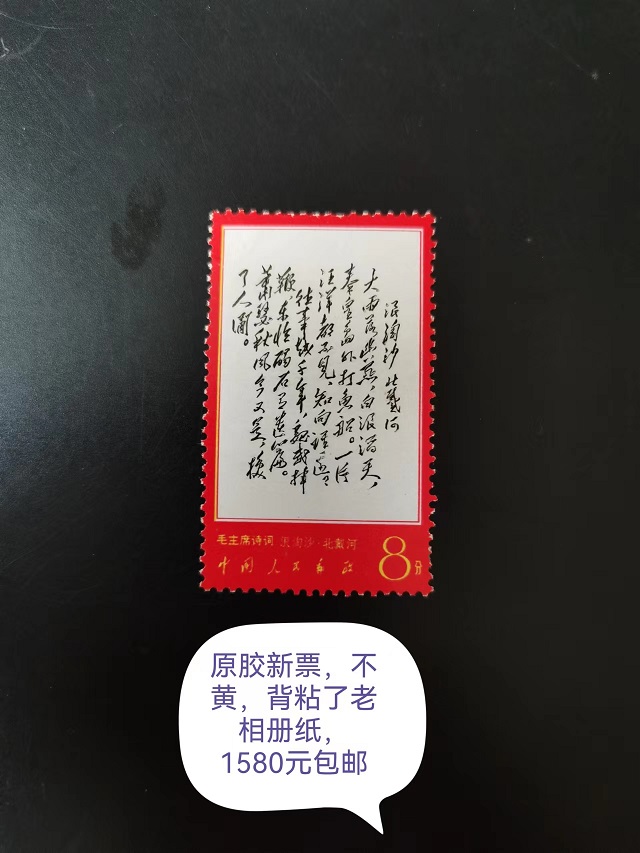 浪淘沙 北戴河
大雨落幽燕,白浪滔天,
秦皇島外打魚船。一片
汪洋都不見,知向誰邊?
往事越千年,魏武揮
鞭,东临碣石有遗篇。
萧瑟秋风今又是,换
了人间。
毛主席诗词 浪淘沙·北戴河
中国人民邮政
8分
原胶新票，不
黄，背粘了老
相册纸，
1580元包邮